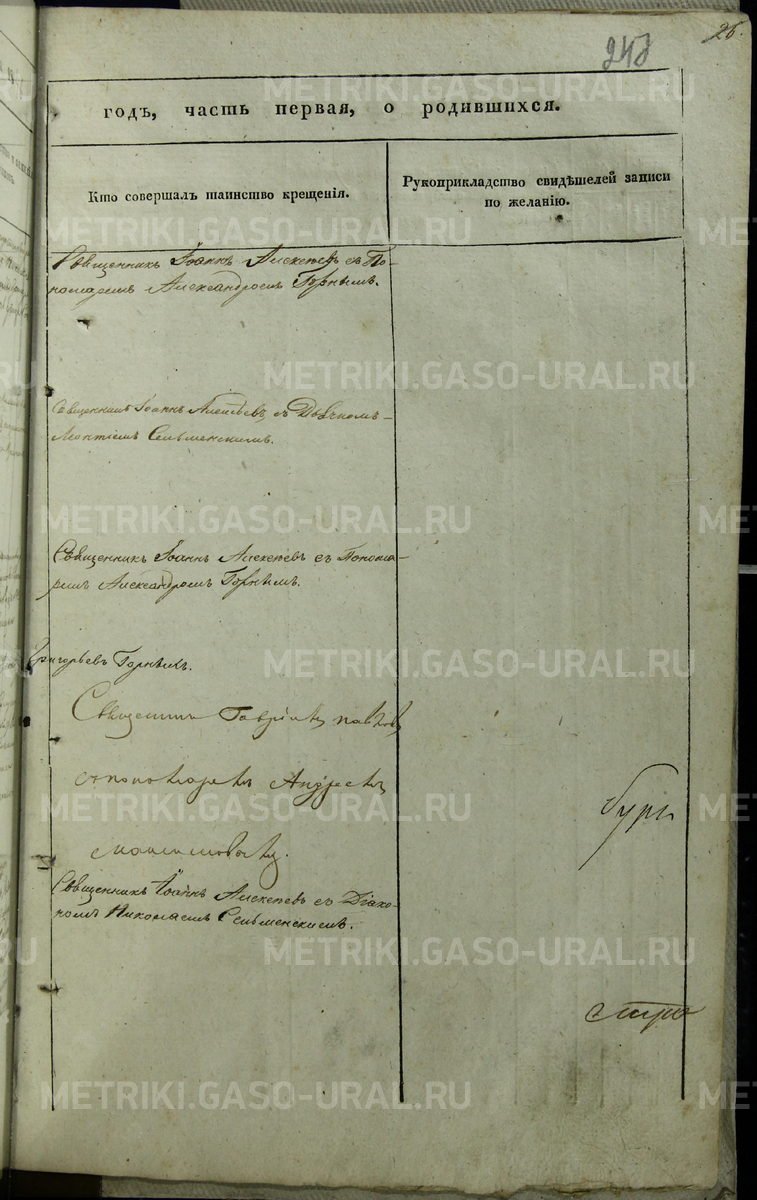 248
26.
годъ, часть первая, о родившихся.
Кто совершалъ таинство крещенія.
Рукоприкладство свидѣтелей записи
по желанію.
Священникъ Іоаннъ Алексѣевъ съ По-
номаремъ Александромъ Горнымъ.
Священникъ Іоаннъ Алексѣевъ съ Дьячкомъ
Леонтіемъ Сельменскимъ.
Священникъ Іоаннъ Алексѣевъ съ Понома-
ремъ Александромъ Горнымъ.
Григорьевъ Горныхъ.
Священникъ Гавріилъ
съ пономаремъ Андреемъ
Священникъ Іоаннъ Алексѣевъ съ Діако-
номъ Николаемъ Сельменскимъ.
METRIKI.GASO-URAL.RU